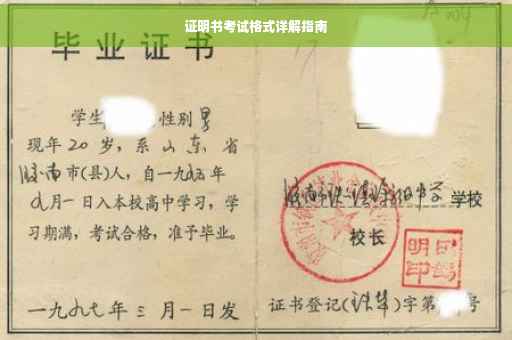 证明书考试格式详解指南
毕业证书
学生 性别男
现年20岁，系山东省
济南市(县)人，自一九九五年
九月一日入本校高中学习，学
习期满，考试合格，准予毕业。
一九九七年三月一日发
学校
校长
证书登记( )字第 号